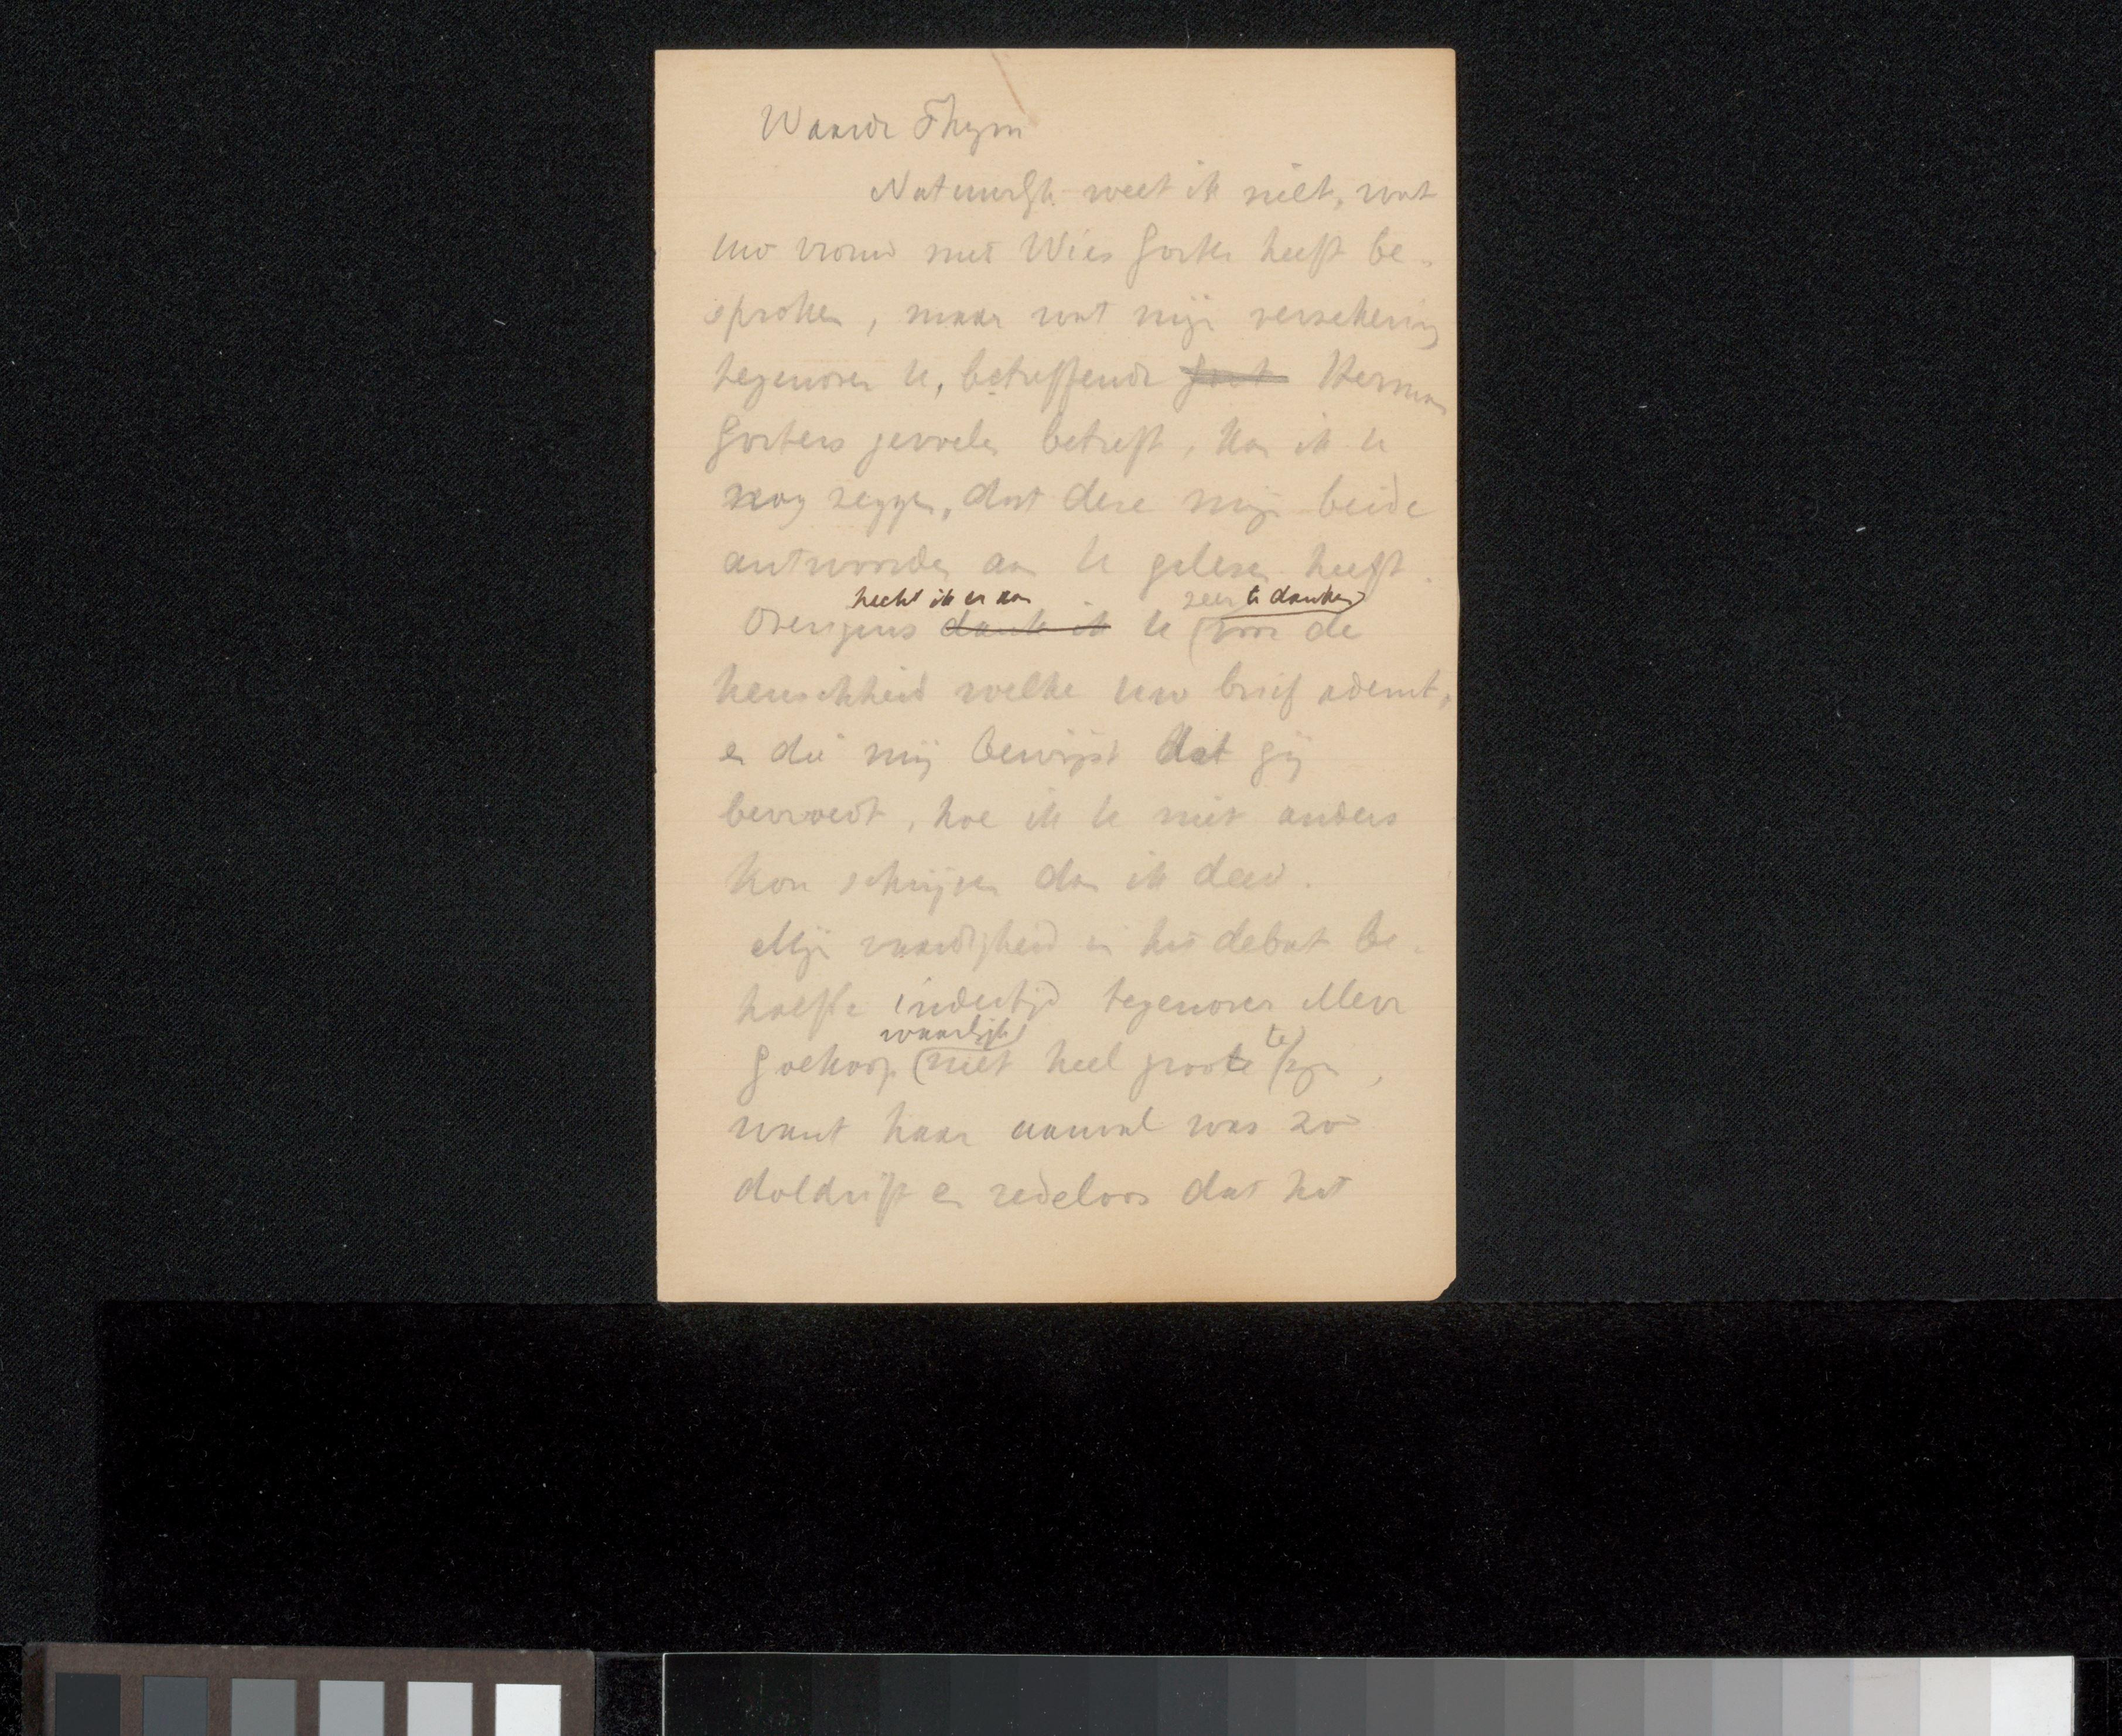 Waarde Thym
Natuurlijk weet ik niet, wat
uw vrouw met Wies Gorter heeft be-
sproken, maar wat mijn verzekering
tegenover U, betreffende Gort Herman
Gorters gevoelen betreft, kan ik U
nog zeggen, dat deze mijn beide
antwoorden aan U gelezen heeft.
hecht ik er aan zeer te danken
Overigens dank ik U voor de
heuschheid welke uw brief ademt,
en die mij bewijst dat gij
bevroedt, hoe ik U niet anders
kon schrijven dan ik deed.
Mijn vaardigheid in het debat be-
hoefde indertijd tegenover Mevr
waarlijk te
Goekoop niet heel groot zijn,
want haar aanval was zoo
doldrift en redeloos dat het